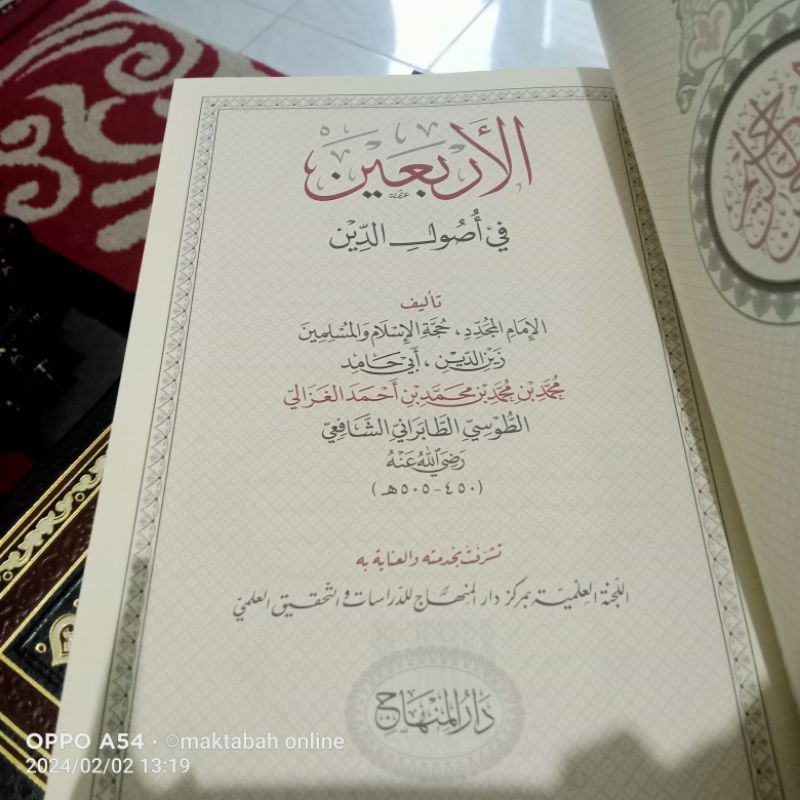 الأَرْبَعِيْنَ
فِيْ أُصُولِ الدِّيْن
تأليف
الإِمَامِ المُجَدِّدِ، حُجَّةِ الإِسْلَامِ وَالمُسْلِمِيْنَ
زَيْنِ الدِّيْنِ، أَبِيْ حَامِد
مُحَمَّدِ بْنِ مُحَمَّدِ بْنِ مُحَمَّدِ بْنِ أَحْمَدَ الغَزَالِيِّ
الطُّوْسِيِّ الطَّابَرَانِيِّ الشَّافِعِيِّ
رَضِيَ اللهُ عَنْهُ
(٤٥٠-٥٠٥هـ)
تشرفت بخدمته والعناية به
اللَّجنة العِلْميّة بمركز دار المنهاج للدّراسات والتحقيق العلميّ
دَارُ المِنْهَاجِ
OPPO A54 · ©maktabah online
2024/02/02 13:19